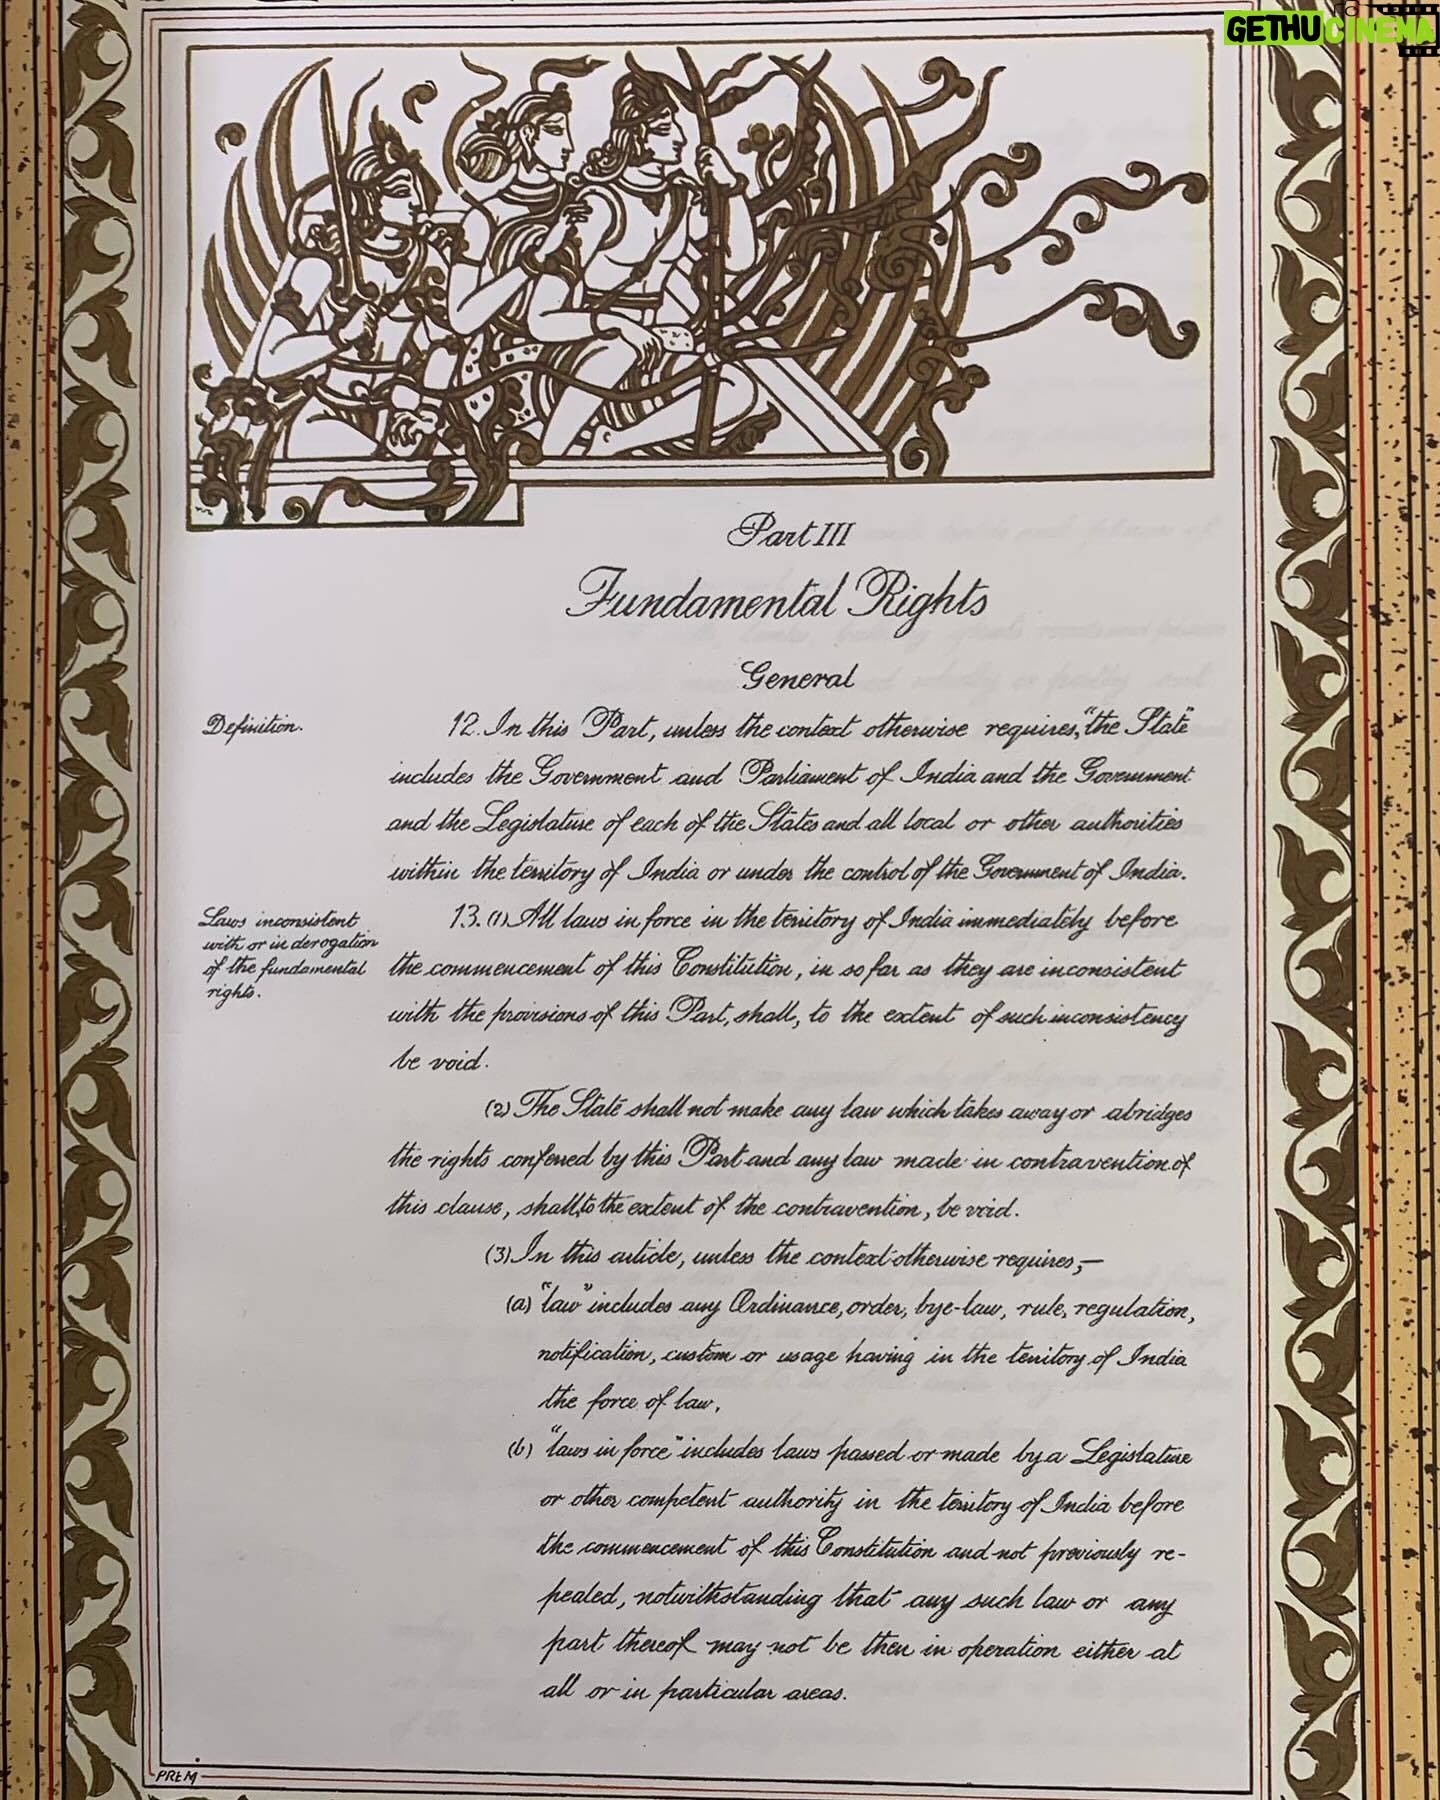 GETHU CINEMA
Part III
Fundamental Rights
General
Definition.
12. In this Part, unless the context otherwise requires, "the State"
includes the Government and Parliament of India and the Government
and the Legislature of each of the States and all local or other authorities
within the territory of India or under the control of the Government of India.
Laws inconsistent
with or in derogation
of the fundamental
rights.
13. (1) All laws in force in the territory of India immediately before
the commencement of this Constitution, in so far as they are inconsistent
with the provisions of this Part, shall, to the extent of such inconsistency
be void.
(2) The State shall not make any law which takes away or abridges
the rights conferred by this Part and any law made in contravention of
this clause, shall, to the extent of the contravention, be void.
(3) In this article, unless the context otherwise requires,—
(a) "law" includes any Ordinance, order, bye-law, rule, regulation,
notification, custom or usage having in the territory of India
the force of law,
(b) "laws in force" includes laws passed or made by a Legislature
or other competent authority in the territory of India before
the commencement of this Constitution and not previously re-
pealed, notwithstanding that any such law or any
part thereof may not be then in operation either at
all or in particular areas.
PREM